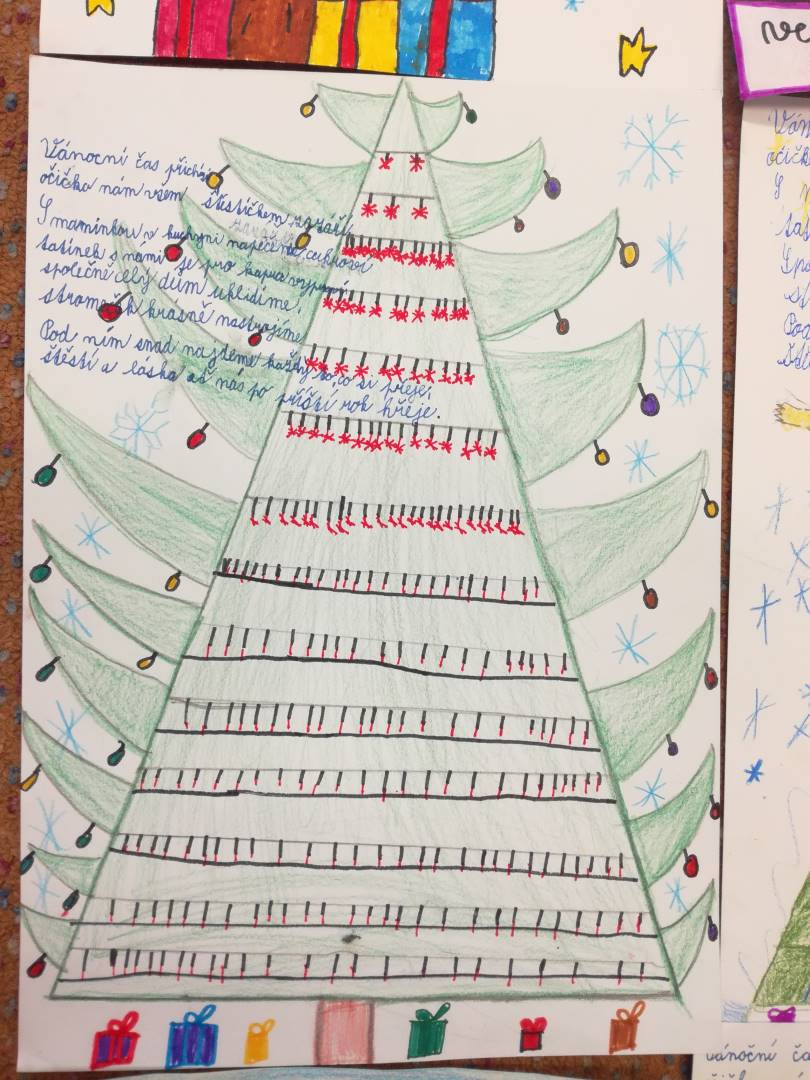 Vánoční čas přichází
očička nám všem štěstíčkem zazáří.
S maminkou v kuchyni napečeme cukroví
tatínek s námi je pro kapra vypraví
společně celý dům uklidíme,
stromeček krásně nastrojíme
Pod ním snad najdeme každý to, co si přeje,
štěstí a láska ať nás po příští rok hřeje.
ve
Ván
očičk
S
tat
Spo
Pod
vánoční ča